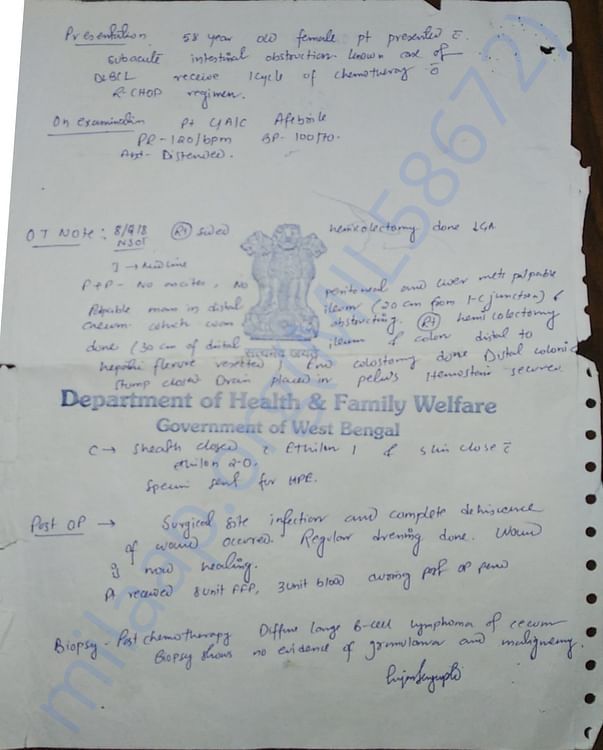 Presentation 58 year old female pt presented c̄
subacute intestinal obstruction. known case of
DLBCL receive 1cycle of chemotheray c̄
R-CHOP regimen.
On examination Pt C/A/C Afebrile
PR - 120/bpm BP - 100/70.
Abd - Distended.
OT NOTE: 8/9/18 (Rt) sided hemicolectomy done ↓GA
NSOT
I → Midline
P+P - No ascites, No peritoneal and liver mets palpable
Palpable mass in distal ileum (20 cm from I-C junction) &
caecum which was obstructing. (Rt) hemicolectomy
done (30 cm of distal ileum & colon distal to
सत्यमेव जयते
hepatic flexure resected) End colostomy done Distal colonic
stump closed Drain placed in pelvis Hemostasis secured
Department of Health & Family Welfare
Government of West Bengal
C → Sheath closed c̄ Ethilon 1 & skin close c̄
ethilon 2-0.
Specim send for HPE.
Post OP → Surgical site infection and complete dehiscence
of wound occurred. Regular dressing done. Wound
is now healing.
Pt received 8unit FFP, 3unit blood during post op
Biopsy - Post chemotherapy Diffuse large B-cell lymphoma of cecum
Biopsy shows no evidence of granuloma and malignancy.
milaap.org(MIL586672)